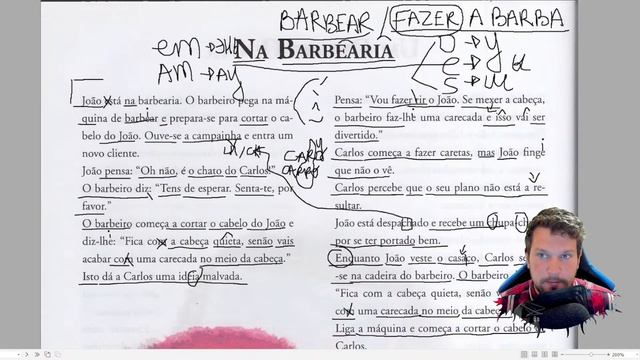 BARBEAR / FAZER A BARBA
em →
AM → AY
O → y
e →
S → ш
NA BARBEARIA
João está na barbearia. O barbeiro pega na má-
quina de barbear e prepara-se para cortar o ca-
belo do João. Ouve-se a campainha e entra um
novo cliente.
João pensa: “Oh não, é o chato do Carlos!”
O barbeiro diz: “Tens de esperar. Senta-te, por
favor.”
O barbeiro começa a cortar o cabelo do João e
diz-lhe: “Fica com a cabeça quieta, senão vais
acabar com uma carecada no meio da cabeça.”
Isto dá a Carlos uma ideia malvada.
Pensa: “Vou fazer rir o João. Se mexer a cabeça,
o barbeiro faz-lhe uma carecada e isso vai ser
divertido.”
Carlos começa a fazer caretas, mas João finge
que não o vê.
Carlos percebe que o seu plano não está a re-
sultar.
João está despachado e recebe um chupa-
por se ter portado bem.
Enquanto João veste o casaco, Carlos
-se na cadeira do barbeiro. O
“Fica com a cabeça quieta, senão
com uma carecada no meio da
Liga a máquina e começa a cortar o cabelo
Carlos.
200%